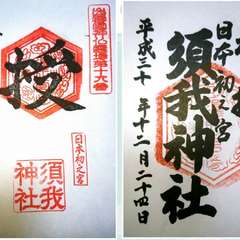 第十六番
授
日本初之宮
須我
神社
日本初之宮
須我神社
平成三十年十二月二十四日